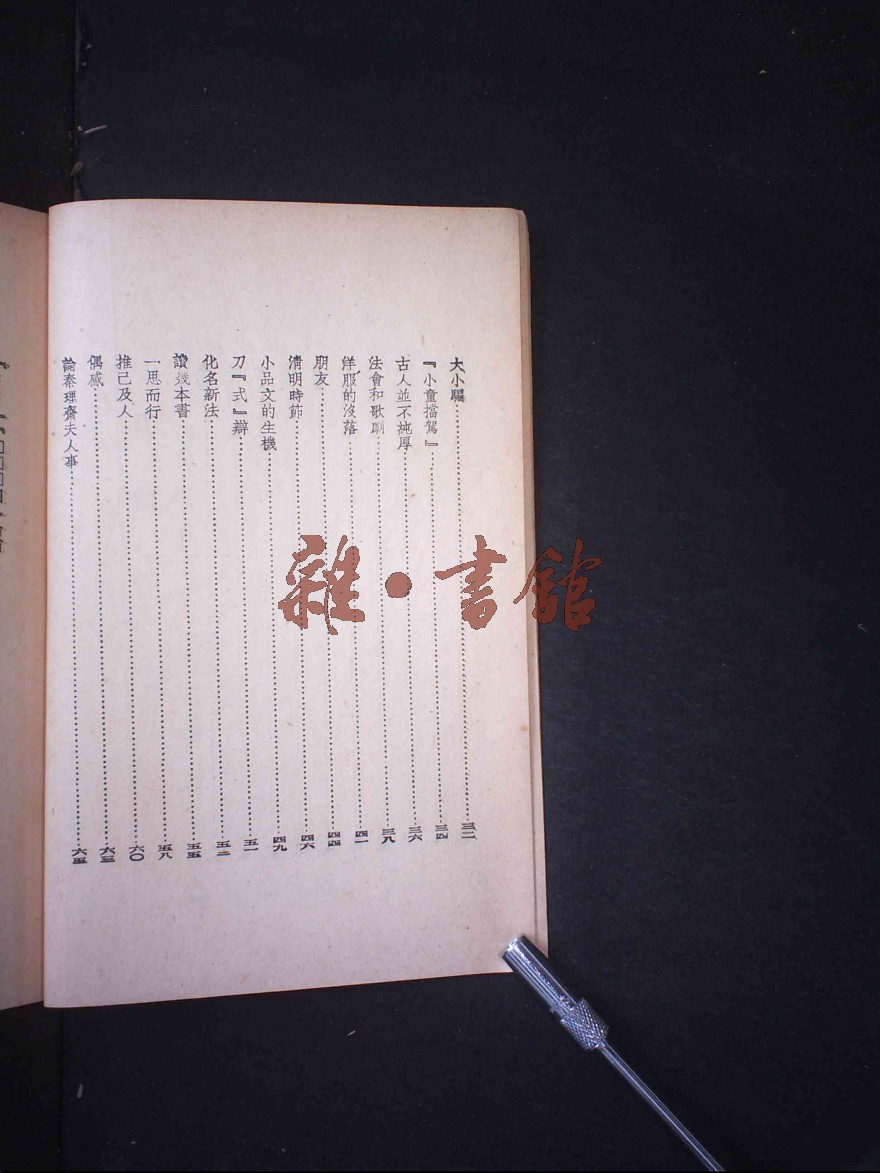 大小騙……三二
『小童擋駕』……三四
古人並不純厚……三六
法會和歌劇……三八
洋服的沒落……四一
朋友……四四
清明時節……四六
小品文的生機……四九
刀『式』辯……五一
化名新法……五二
讀幾本書……五五
一思而行……五八
推己及人……六〇
偶感……六三
論秦理齋夫人事……六五
雜·書館